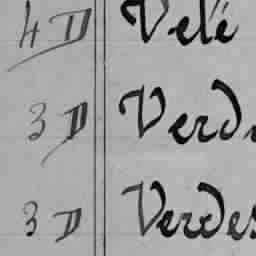 4 D Velé
3 D Verd
3 D Verdes